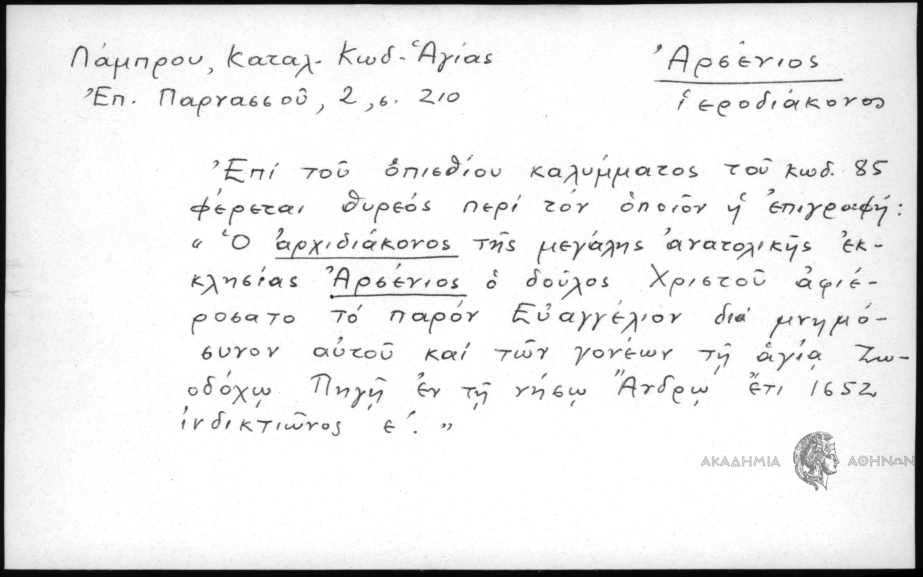 Λάμπρου, Καταλ. Κωδ. Ἁγίας
Ἐπ. Παρνασσοῦ, 2, σ. 210
Ἀρσένιος
ἱεροδιάκονος
Ἐπί τοῦ ὀπισθίου καλύμματος τοῦ κωδ. 85
φέρεται θυρεός περί τόν ὁποῖον ἡ ἐπιγραφή:
"Ὁ ἀρχιδιάκονος τῆς μεγάλης ἀνατολικῆς ἐκ-
κλησίας Ἀρσένιος ὁ δοῦλος Χριστοῦ ἀφιέ-
ροσατο τό παρόν Εὐαγγέλιον διά μνημό-
συνον αὐτοῦ καί τῶν γονέων τῇ ἁγίᾳ Ζω-
οδόχῳ Πηγῇ ἐν τῇ νήσῳ Ἄνδρῳ ἔτι 1652
ἰνδικτιῶνος ε΄."
ΑΚΑΔΗΜΙΑ ΑΘΗΝΩΝ